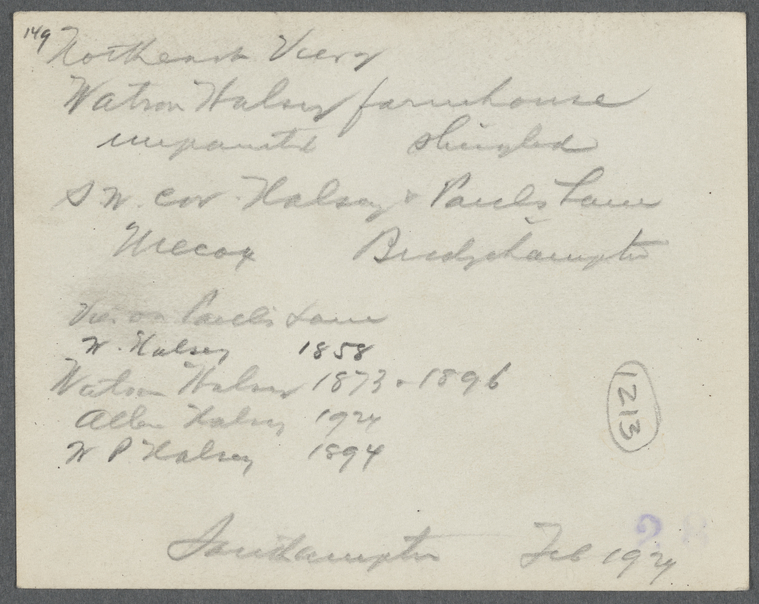 149 Northeast View
Watson Halsey farmhouse
unpainted shingled
S W. cor. Halsey & Pauls Lane
Mecox Bridgehampton
View on Paul's Lane
W. Halsey 1858
Watson Halsey 1873 & 1896
Allen Halsey 1924
W P Halsey 1894
1213
Southampton Feb 1924